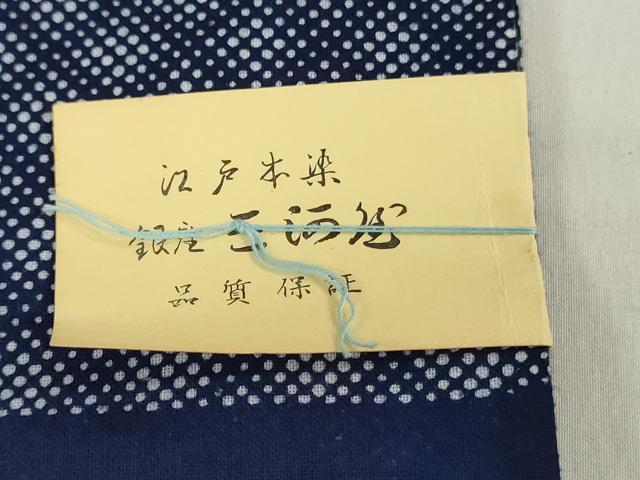 江戸本染
銀座 三河屋
品質保証